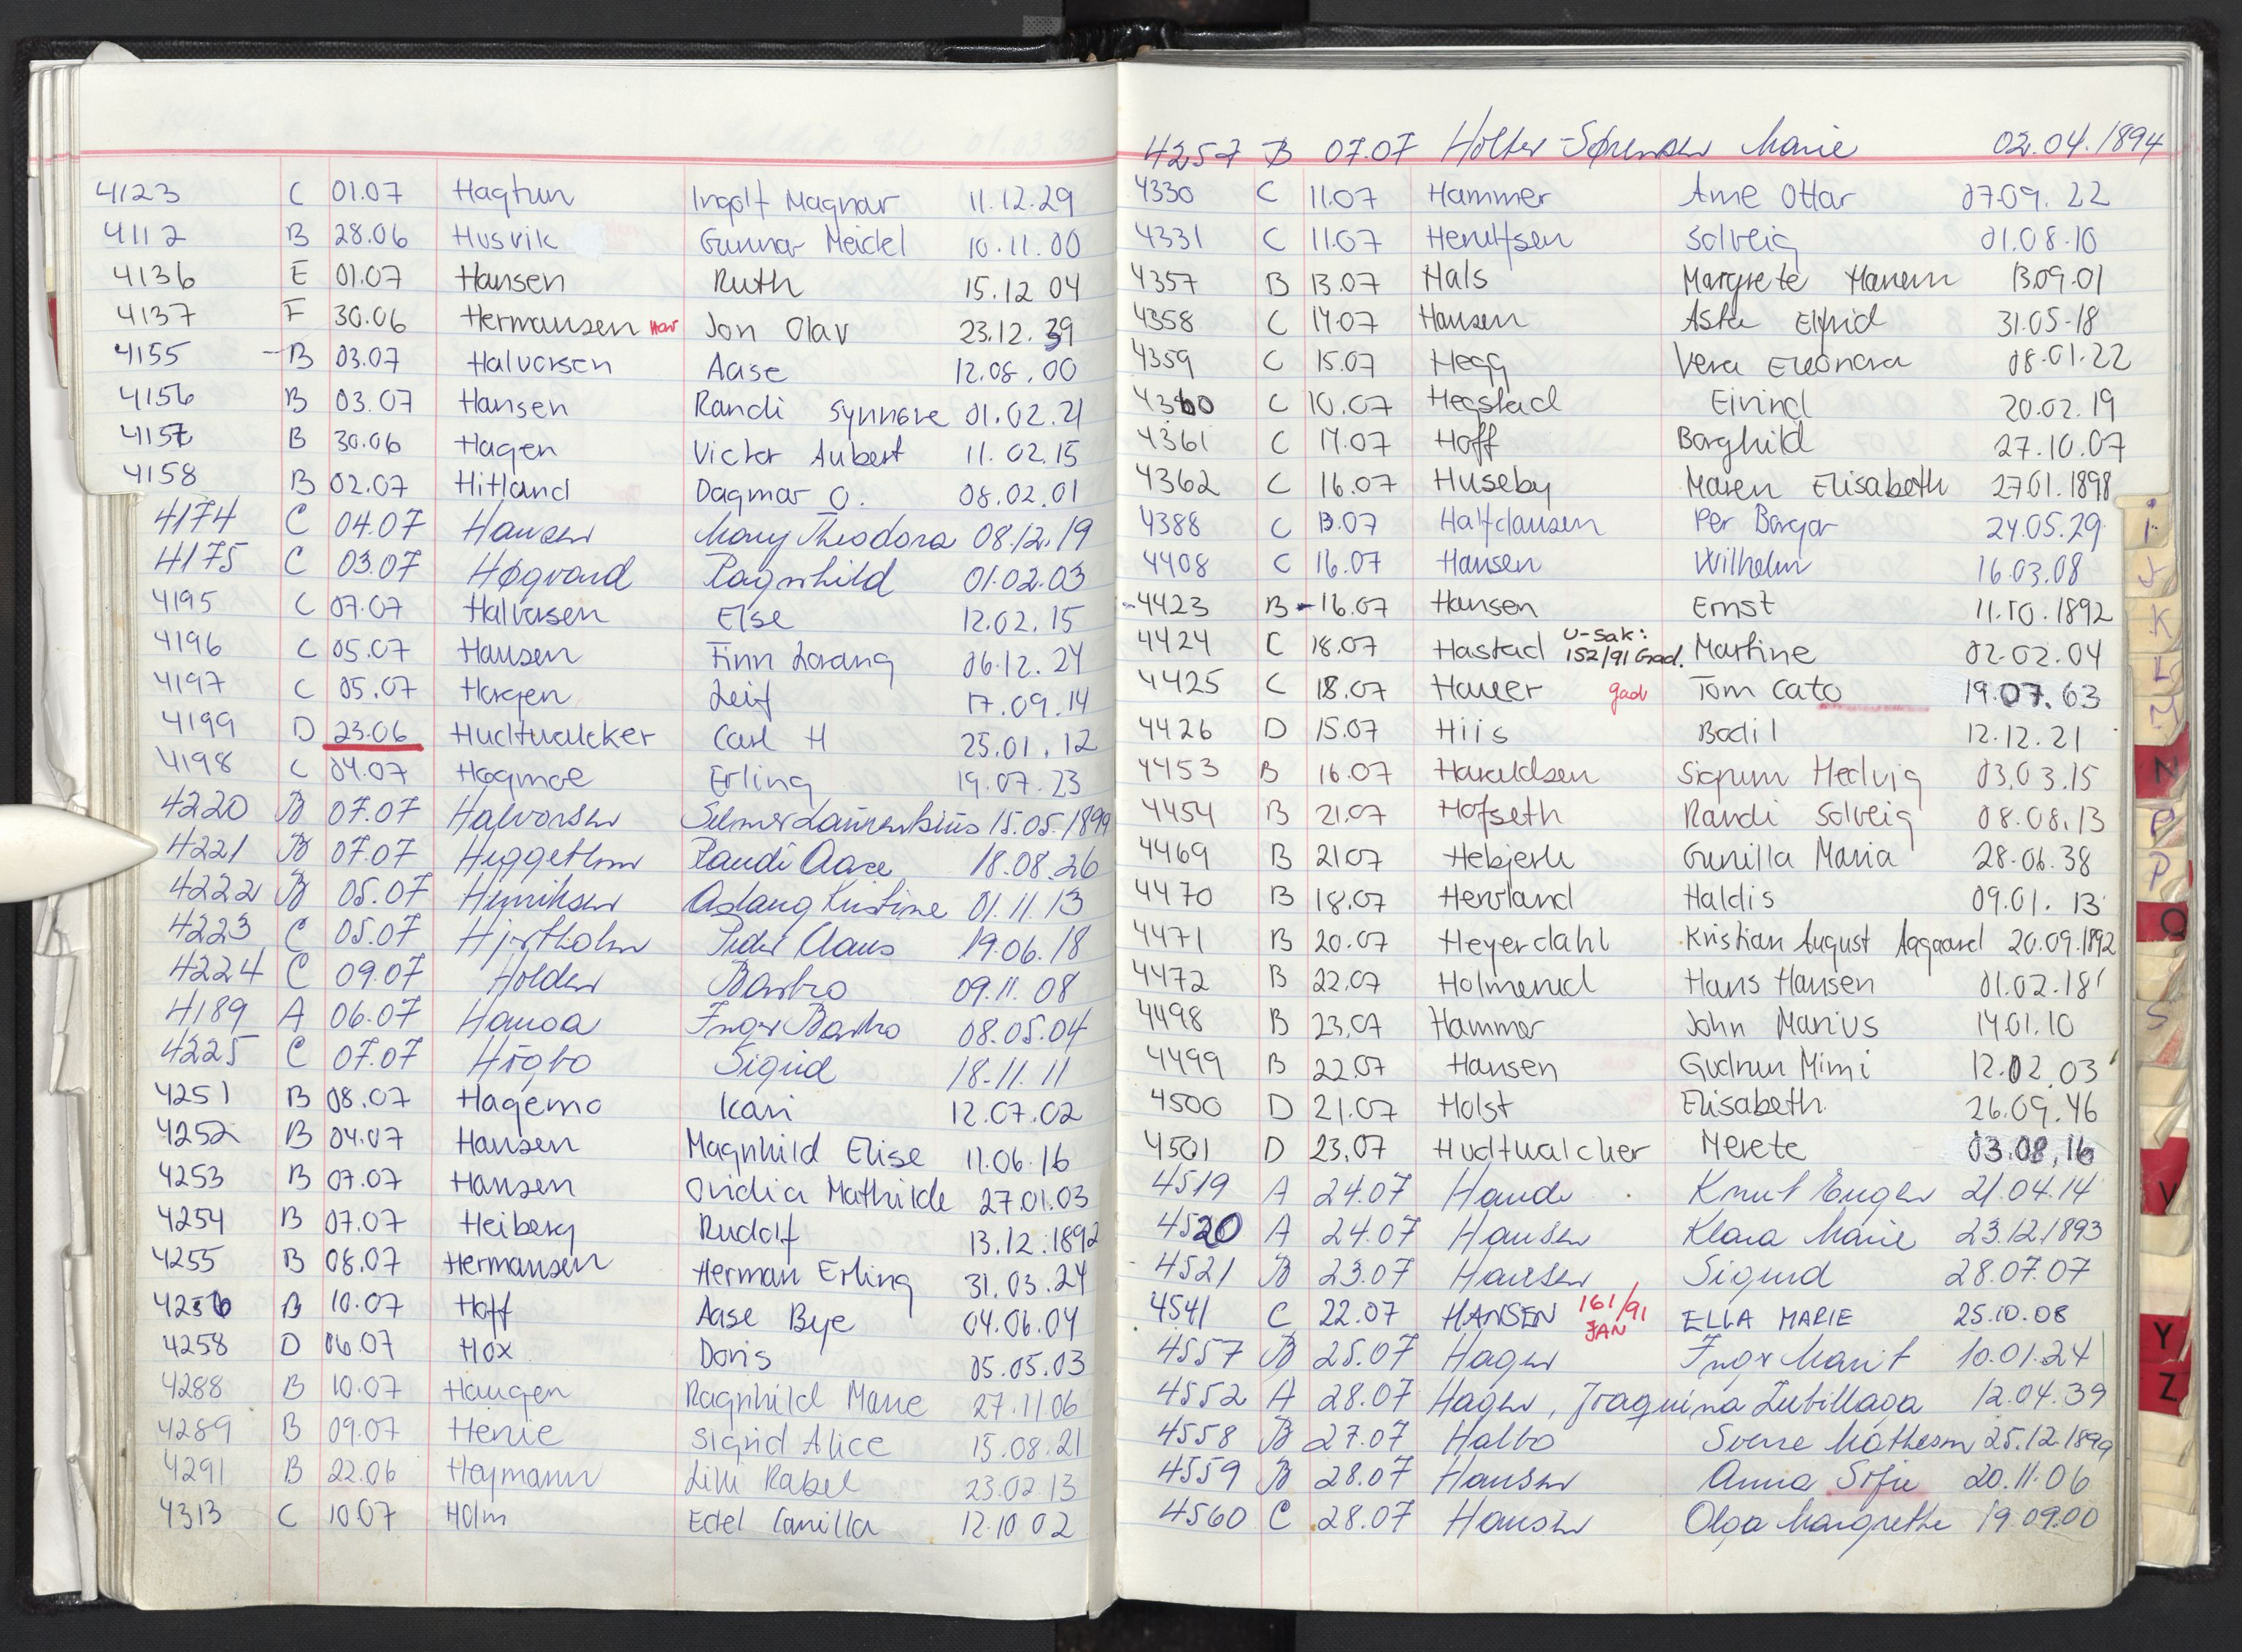 4123 C 01.07 Hagtun Ingolf Magnar 11.12.29
4112 B 28.06 Husvik Gunnar Meidel 10.11.00
4136 E 01.07 Hansen Ruth 15.12 04
4137 F 30.06 Hermansen Jon Olav 23.12.39
4155 B 03.07 Halvorsen Aase 12.08.00
4156 B 03.07 Hansen Randi Synnøve 01.02.21
4157 B 30.06 Hagen Victor Aubert 11.02.15
4158 B 02.07 Hitland Dagmar O. 08.02.01
4174 C 04.07 Hansen Mary Theodora 08.12.19
4175 C 03.07 Høgvard Ragnhild 01.02.03
4195 C 07.07 Halvorsen Else 12.02.15
4196 C 05.07 Hansen Finn Lorang 06.12.24
4197 C 05.07 Hagen Leif 17.09.14
4199 D 23.06 Hudtwalcker Carl H 25.01.12
4198 C 04.07 Hagmoe Erling 19.07.23
4220 B 07.07 Halvorsen Selmer Laurentius 15.05.1899
4221 B 07.07 Randi Aase 18.08.26
4222 B 05.07 Henriksen Aslaug Kristine 01.11.13
4223 C 05.07 Hjortholm Peder Claus 19.06.18
4224 C 09.07 Holder Barbro 09.11.08
4189 A 06.07 Inger Barbro 08.05.04
4225 C 07.07 Högbo Sigrid 18.11.11
4251 B 08.07 Hagemo Kari 12.07.02
4252 B 04.07 Hansen Magnhild Elise 11.06.16
4253 B 07.07 Hansen Ovidia Mathilde 27.01.03
4254 B 07.07 Heiberg Rudolf 13.12.1892
4255 B 08.07 Hermansen Herman Erling 31.03.24
4256 B 10.07 Hoff Aase Bye 04.06.04
4258 D 06.07 Hox Doris 05.05.03
4288 B 10.07 Haugen Ragnhild Marie 27.11.06
4289 B 09.07 Henie Sigrid Alice 15.08.21
4291 B 22.06 Heymann Lilli Rakel 23.02.13
4313 C 10.07 Holm Edel Camilla 12.10 02
4257 B 07.07 Holter-Sørensen Marie 02.04.1894
4330 C 11.07 Hammer Arne Ottar 07.09.22
4331 C 11.07 Solveig 01.08.10
4357 B 13.07 Hals Margrete 13.09.01
4358 C 14.07 Hansen Asta Elfrid 31.05-18
4359 C 15.07 Hegg Vera Eleonora 08.01.22
4360 C 10.07 Hegstad Eivind 20.02.19
4361 C 14.07 Hoff Borghild 27.10.07
4362 C 16.07 Huseby Maren Elisabeth 27.01.1898
4388 C 13.07 Halfdansen Per Borgar 24.05.29
4408 C 16.07 Hansen Wilhelm 16.03.08
4423 B 16.07 Hansen Ernst 11.10.1892
4424 C 18.07 Hastad U-sak: 152/91 Grad. Martine 02.02.04
4425 C 18.07 Hauer Tom Cato 19.07.63
4426 D 15.07 Hiis Bodil 12.12.21
4453 B 16.07 Haraldsen Sigrunn Hedvig 03.03.15
4454 B 21.07 Hofseth Randi Solveig 08.08.13
4469 B 21.07 Gunilla Maria 28.06.38
4470 B 18.07 Hervland Haldis 09.01.13
4471 B 20.07 Heyerdahl Kristian August Aagaard 20.09.1892
4472 B 22.07 Holmerud Hans Hansen 01.02.18
4498 B 23.07 Hammer John Marius 14.01.10
4499 B 22.07 Hansen Gudrun Mimi 12.02.03
4500 D 21.07 Holst Elisabeth 26.09.46
4501 D 23.07 Hudtwalcker Merete 03.08.16
4519 A 24.07 Knut Enger 21.04.14
4520 A 24.07 Hansen Klara Marie 23.12.1893
4521 B 23.07 Hansen Sigurd 28.07.07
4541 C 22.07 HANSEN 161/91 JAN ELLA MARIE 25.10.08
4557 B 25.07 Hagen Inger Marit 10.01.24
4552 A 28.07 Hagen, Joaquina Zubillaga 12.04.39
4558 B 27.07 Halbo Sverre Matheson 25.12.1899
4559 B 28.07 Hansen Anna Sofie 20.11.06
4560 C 28.07 Hansen Olga Margrethe 19.09.00
i
J
K
L
M
N
Ø
P
Q
S
V
Y
Z